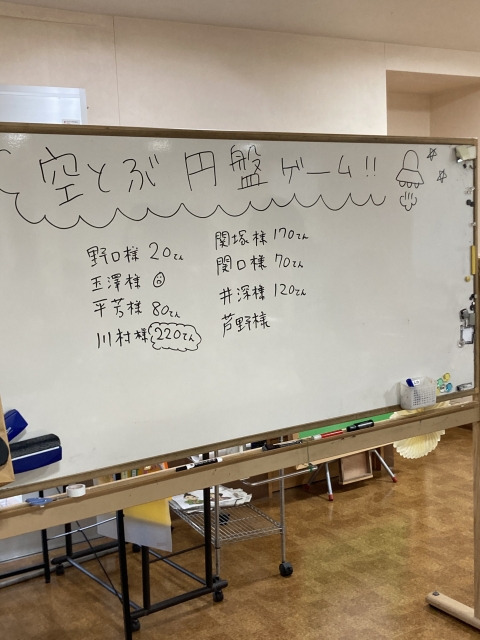 空とぶ円盤ゲーム!!
野口様 20てん
玉澤様
平芳様 80てん
川村様 220てん
関塚様 170てん
関口様 70てん
井深様 120てん
芦野様